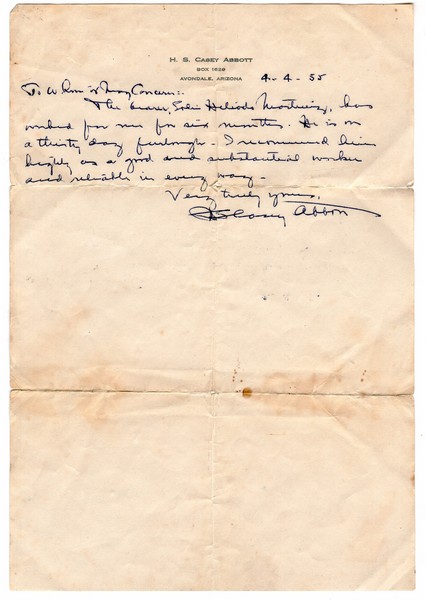 H. S. CASEY ABBOTT
BOX 1629
AVONDALE, ARIZONA
4-4-55
To Whom it May Concern:.
The bearer, Heliodo Martinez, has
worked for me for six months. He is on
a thirty day furlough - I recommend him
highly as a good and substantial worker
and reliable in every way -
Very truly yours,
HS Casey Abbott